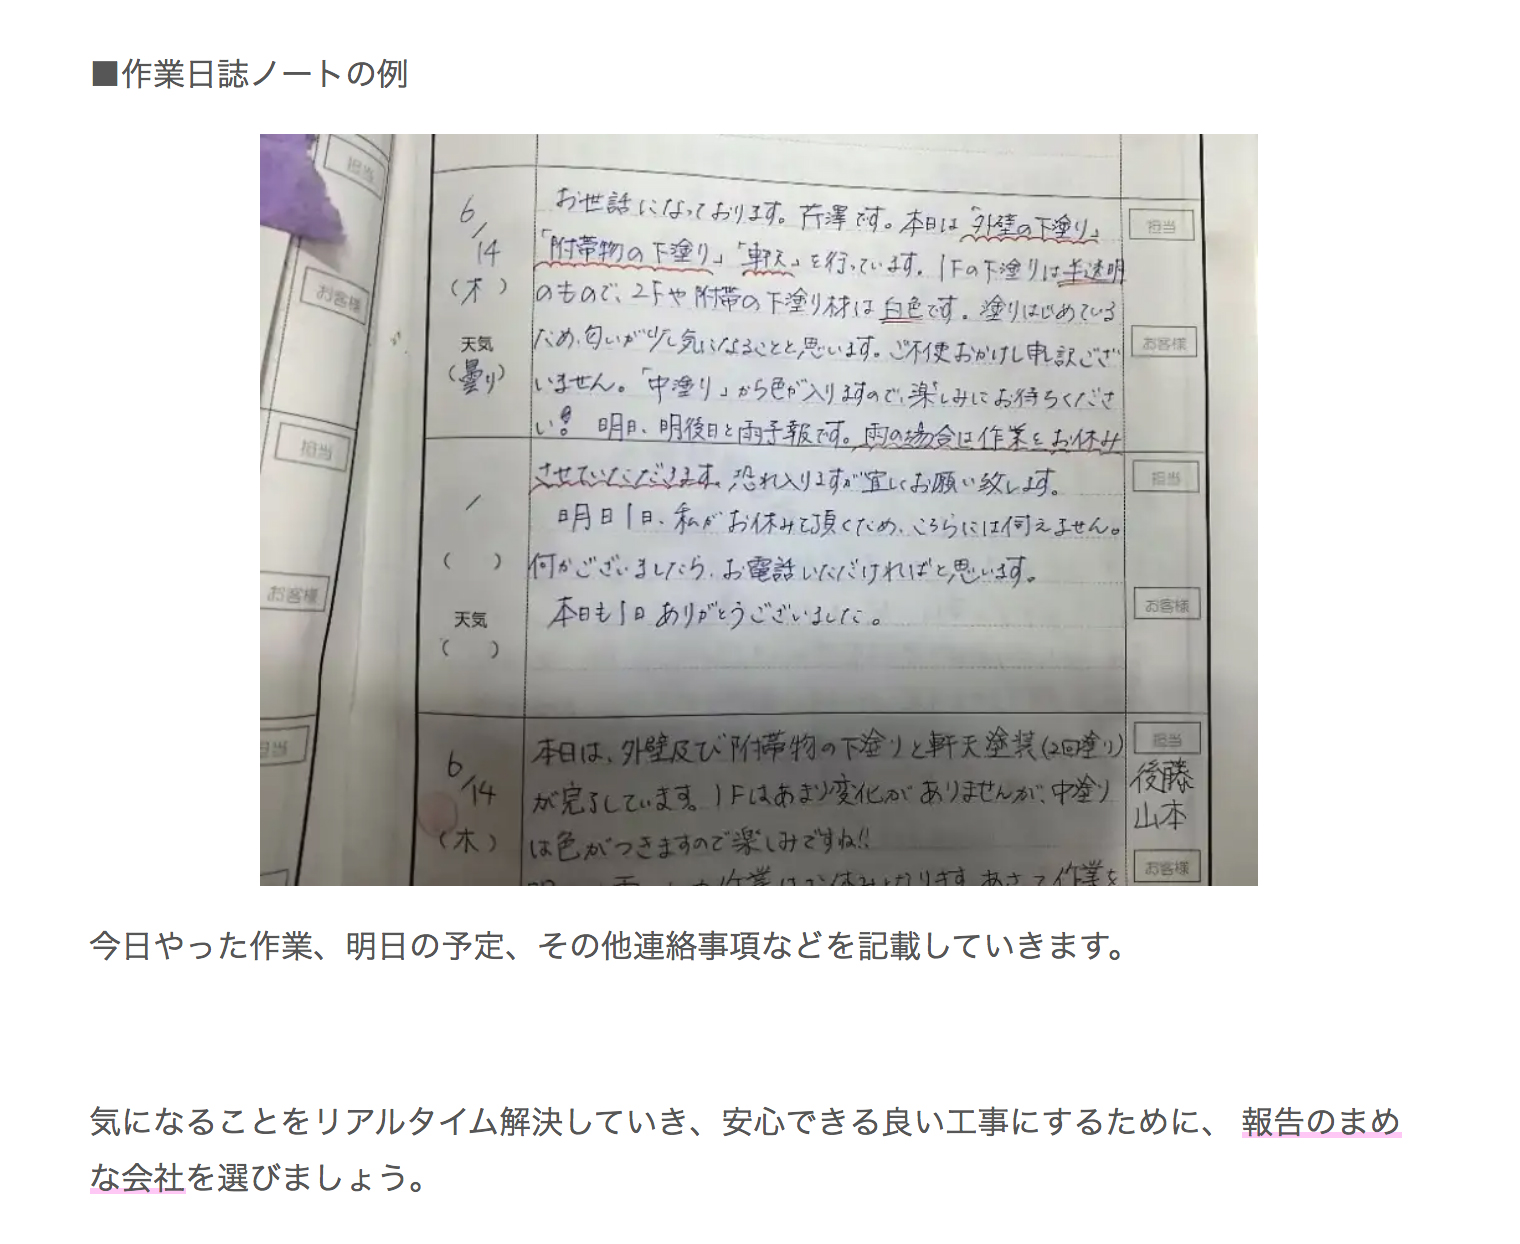 ■作業日誌ノートの例
担当
お客様
担当
お客様
担当
6/14
(木)
天気
(曇り)
お世話になっております。芹澤です。本日は「外壁の下塗り」
「附帯物の下塗り」「軒天」を行っています。1Fの下塗りは半透明
のもので、2Fや附帯の下塗り材は白色です。塗りはじめている
ため、匂いが少し気になることと思います。ご不便おかけし申し訳ござ
いません。「中塗り」から色が入りますので、楽しみにお待ちくださ
い! 明日、明後日と雨予報です。雨の場合は作業をお休み
担当
お客様
/
( )
天気
( )
させていただきます。恐れ入りますが宜しくお願い致します。
明日1日、私がお休みを頂くため、こちらには伺えません。
何かございましたら、お電話いただければと思います。
本日も1日ありがとうございました。
担当
お客様
6/14
(木)
本日は、外壁及び附帯物の下塗りと軒天塗装(2回塗り)
が完了しています。1Fはあまり変化がありませんが、中塗り
は色がつきますので楽しみですね!!
担当
後藤
山本
お客様
今日やった作業、明日の予定、その他連絡事項などを記載していきます。
気になることをリアルタイム解決していき、安心できる良い工事にするために、 報告のまめ
な会社を選びましょう。